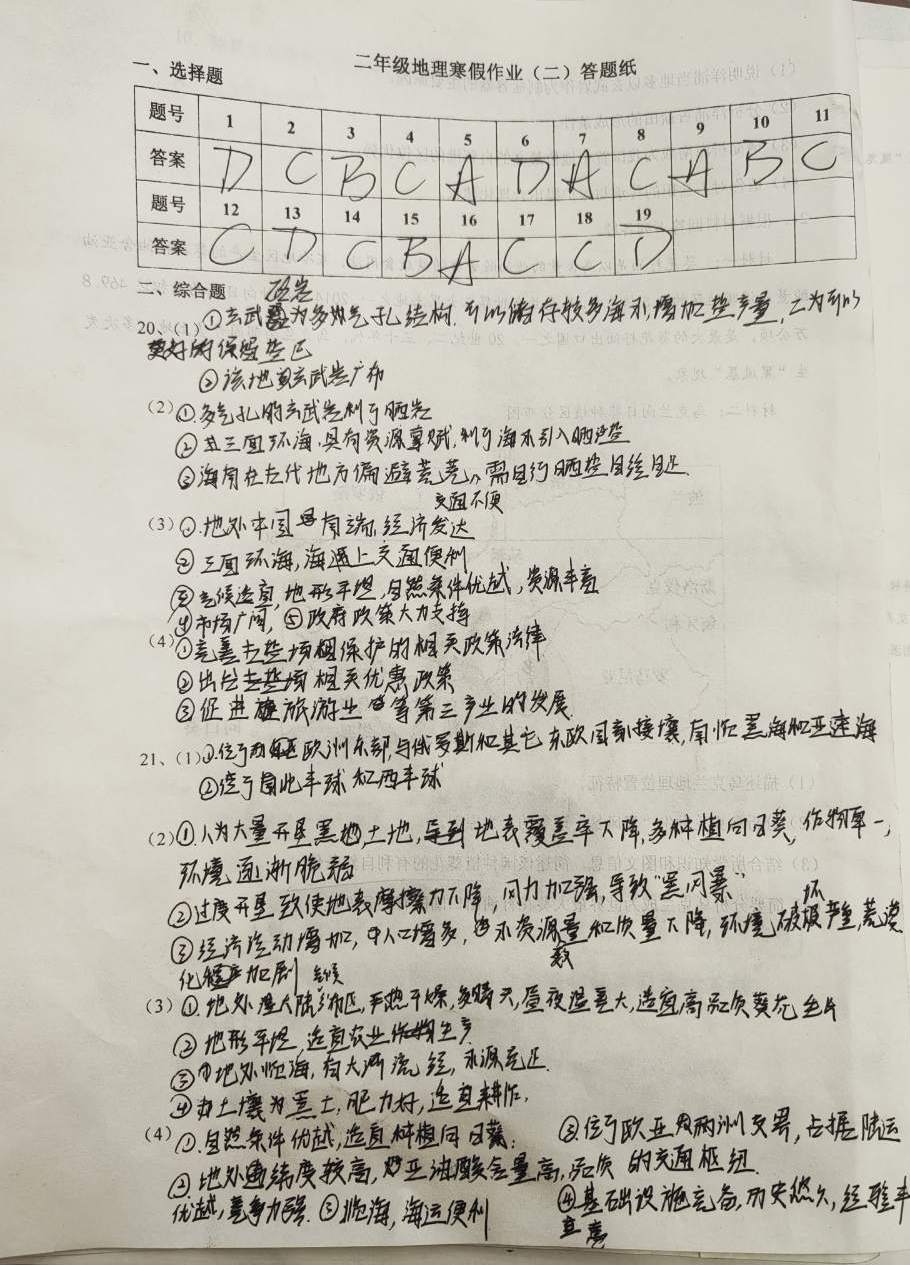 二年级地理寒假作业（二）答题纸
一、选择题
题号 1 2 3 4 5 6 7 8 9 10 11
答案 D C B C A D A C A B C
题号 12 13 14 15 16 17 18 19
答案 C D C B A C C D
二、综合题
20、（1）①玄武岩为多气孔结构,可以储存较多海水,增加盐产量,
更好的保留
②该地玄武岩广布
（2）①.多气孔的玄武岩利于晒盐
②.其三面环海,具有资源禀赋,利于海水引入晒盐
③海南在古代地方偏避荒芜,需自行晒盐自给自足.
交通不便
（3）①.地处中国南端,经济发达
②三面环海,海上交通便利
③气候适宜,地形平坦,自然条件优越,资源丰富
④市场广阔,⑤政府政策大力支持
（4）①完善古盐场相保护的相关政策法律
②出台相关优惠政策
③促进旅游业等第三产业的发展.
21、（1）①.位于欧洲东部,与俄罗斯和其它东欧国家接壤,南临黑海和亚速海
②位于北半球和西半球
（2）①.人为大量开垦黑土地,导致地表覆盖率下降,多种植向日葵,作物单一,
环境逐渐脆弱
②过度开垦致使地表摩擦力下降,风力加强,导致“黑风暴”
③经济活动增加,人口增多,水资源数量和质量下降,环境破坏严重,荒漠
化加剧
（3）①.地处温大陆气候区,干燥,多晴天,昼夜温差大,适宜高品质葵花生产
②地形平坦,适宜农业生产
③地处临海,有大河流经,水源充足.
④土壤为黑土,肥力好,适宜耕作.
（4）①.自然条件优越,适宜种植向日葵;
②.地处纬度较高,亚油酸含量高,品质
优越,竞争力强.③临海,海运便利
③位于欧亚两洲交界,占据陆运
的交通枢纽.
④基础设施完备,历史悠久,经验丰
富